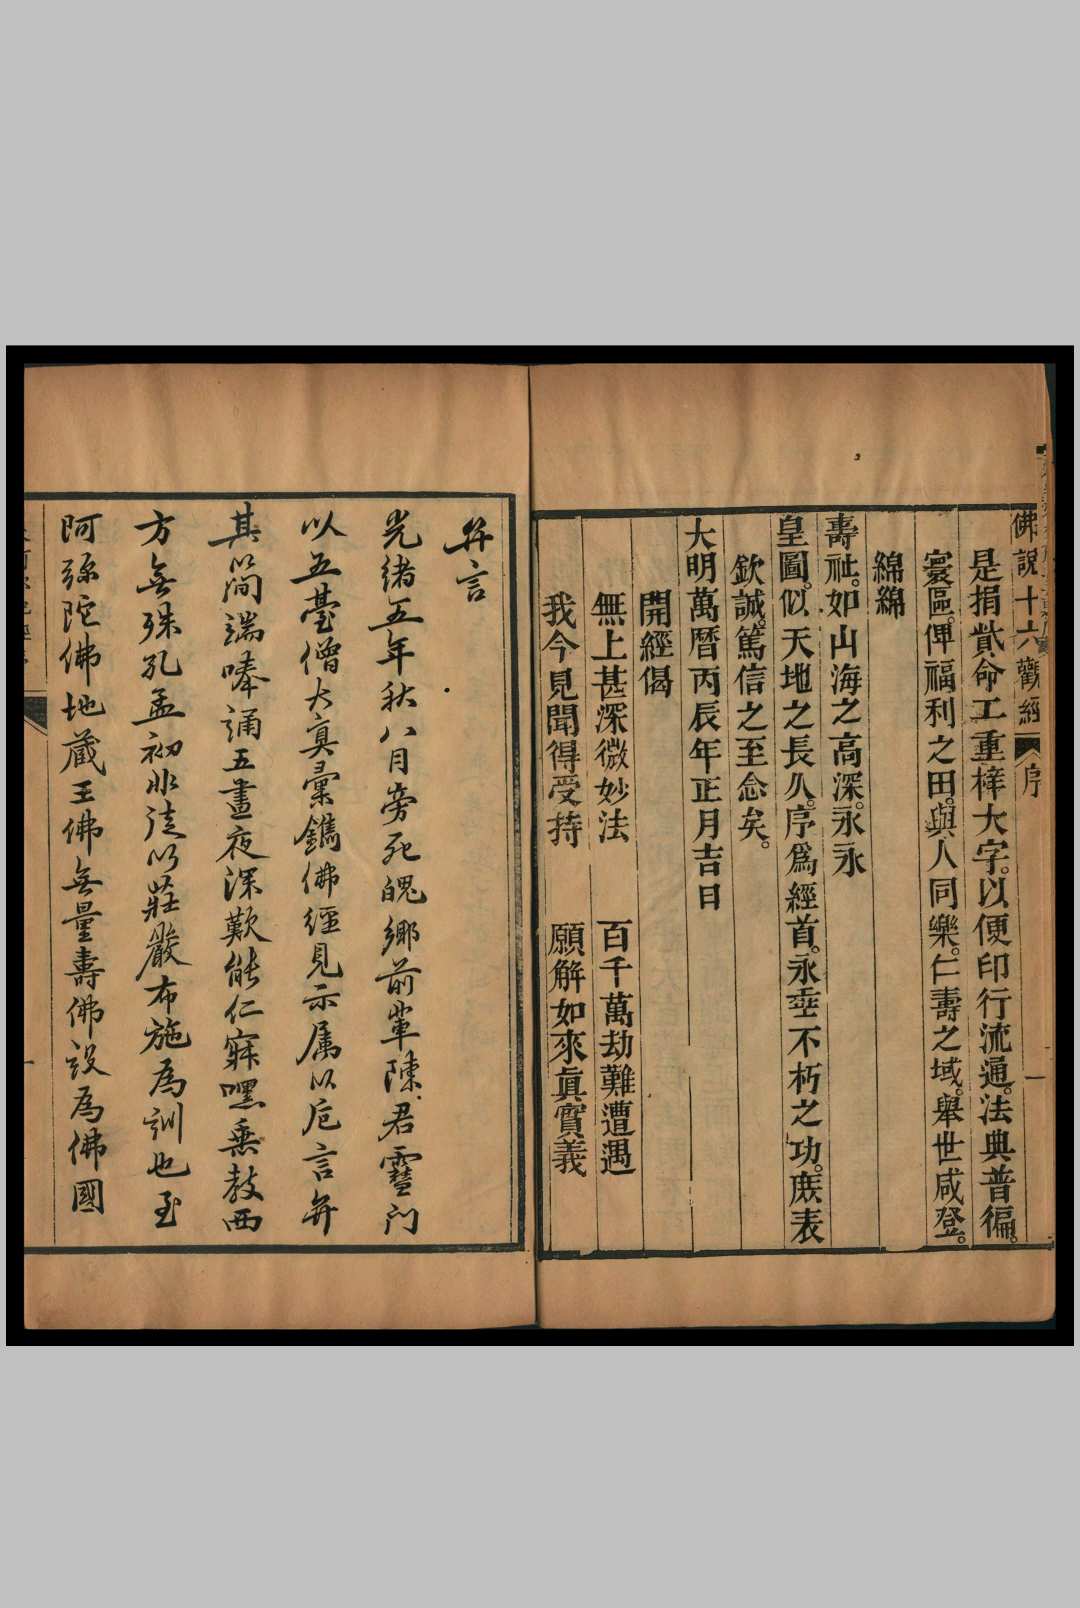 佛說十六觀經 序 一
是捐貲命工重梓大字。以便印行流通。法典普徧。
寰區。俾福利之田。與人同樂。仁壽之域。舉世咸登。
綿綿
壽祉。如山海之高深。永永
皇圖。似天地之長久。序爲經首。永垂不朽之功。庻表
欽誠。篤信之至念矣。
大明萬曆丙辰年正月吉日
開經偈
無上甚深微妙法 百千萬劫難遭遇
我今見聞得受持 願解如來眞實義
弁言
光緒五年秋八月旁死魄鄉前輩陳君靈門
以五臺僧大真彙鐫佛經見示属以卮言弁
其簡端唪誦五晝夜深歎能仁寂嘿垂教西
方無殊孔孟初非徒以莊嚴布施為訓也至
阿彌陀佛地藏王佛無量壽佛設為佛國